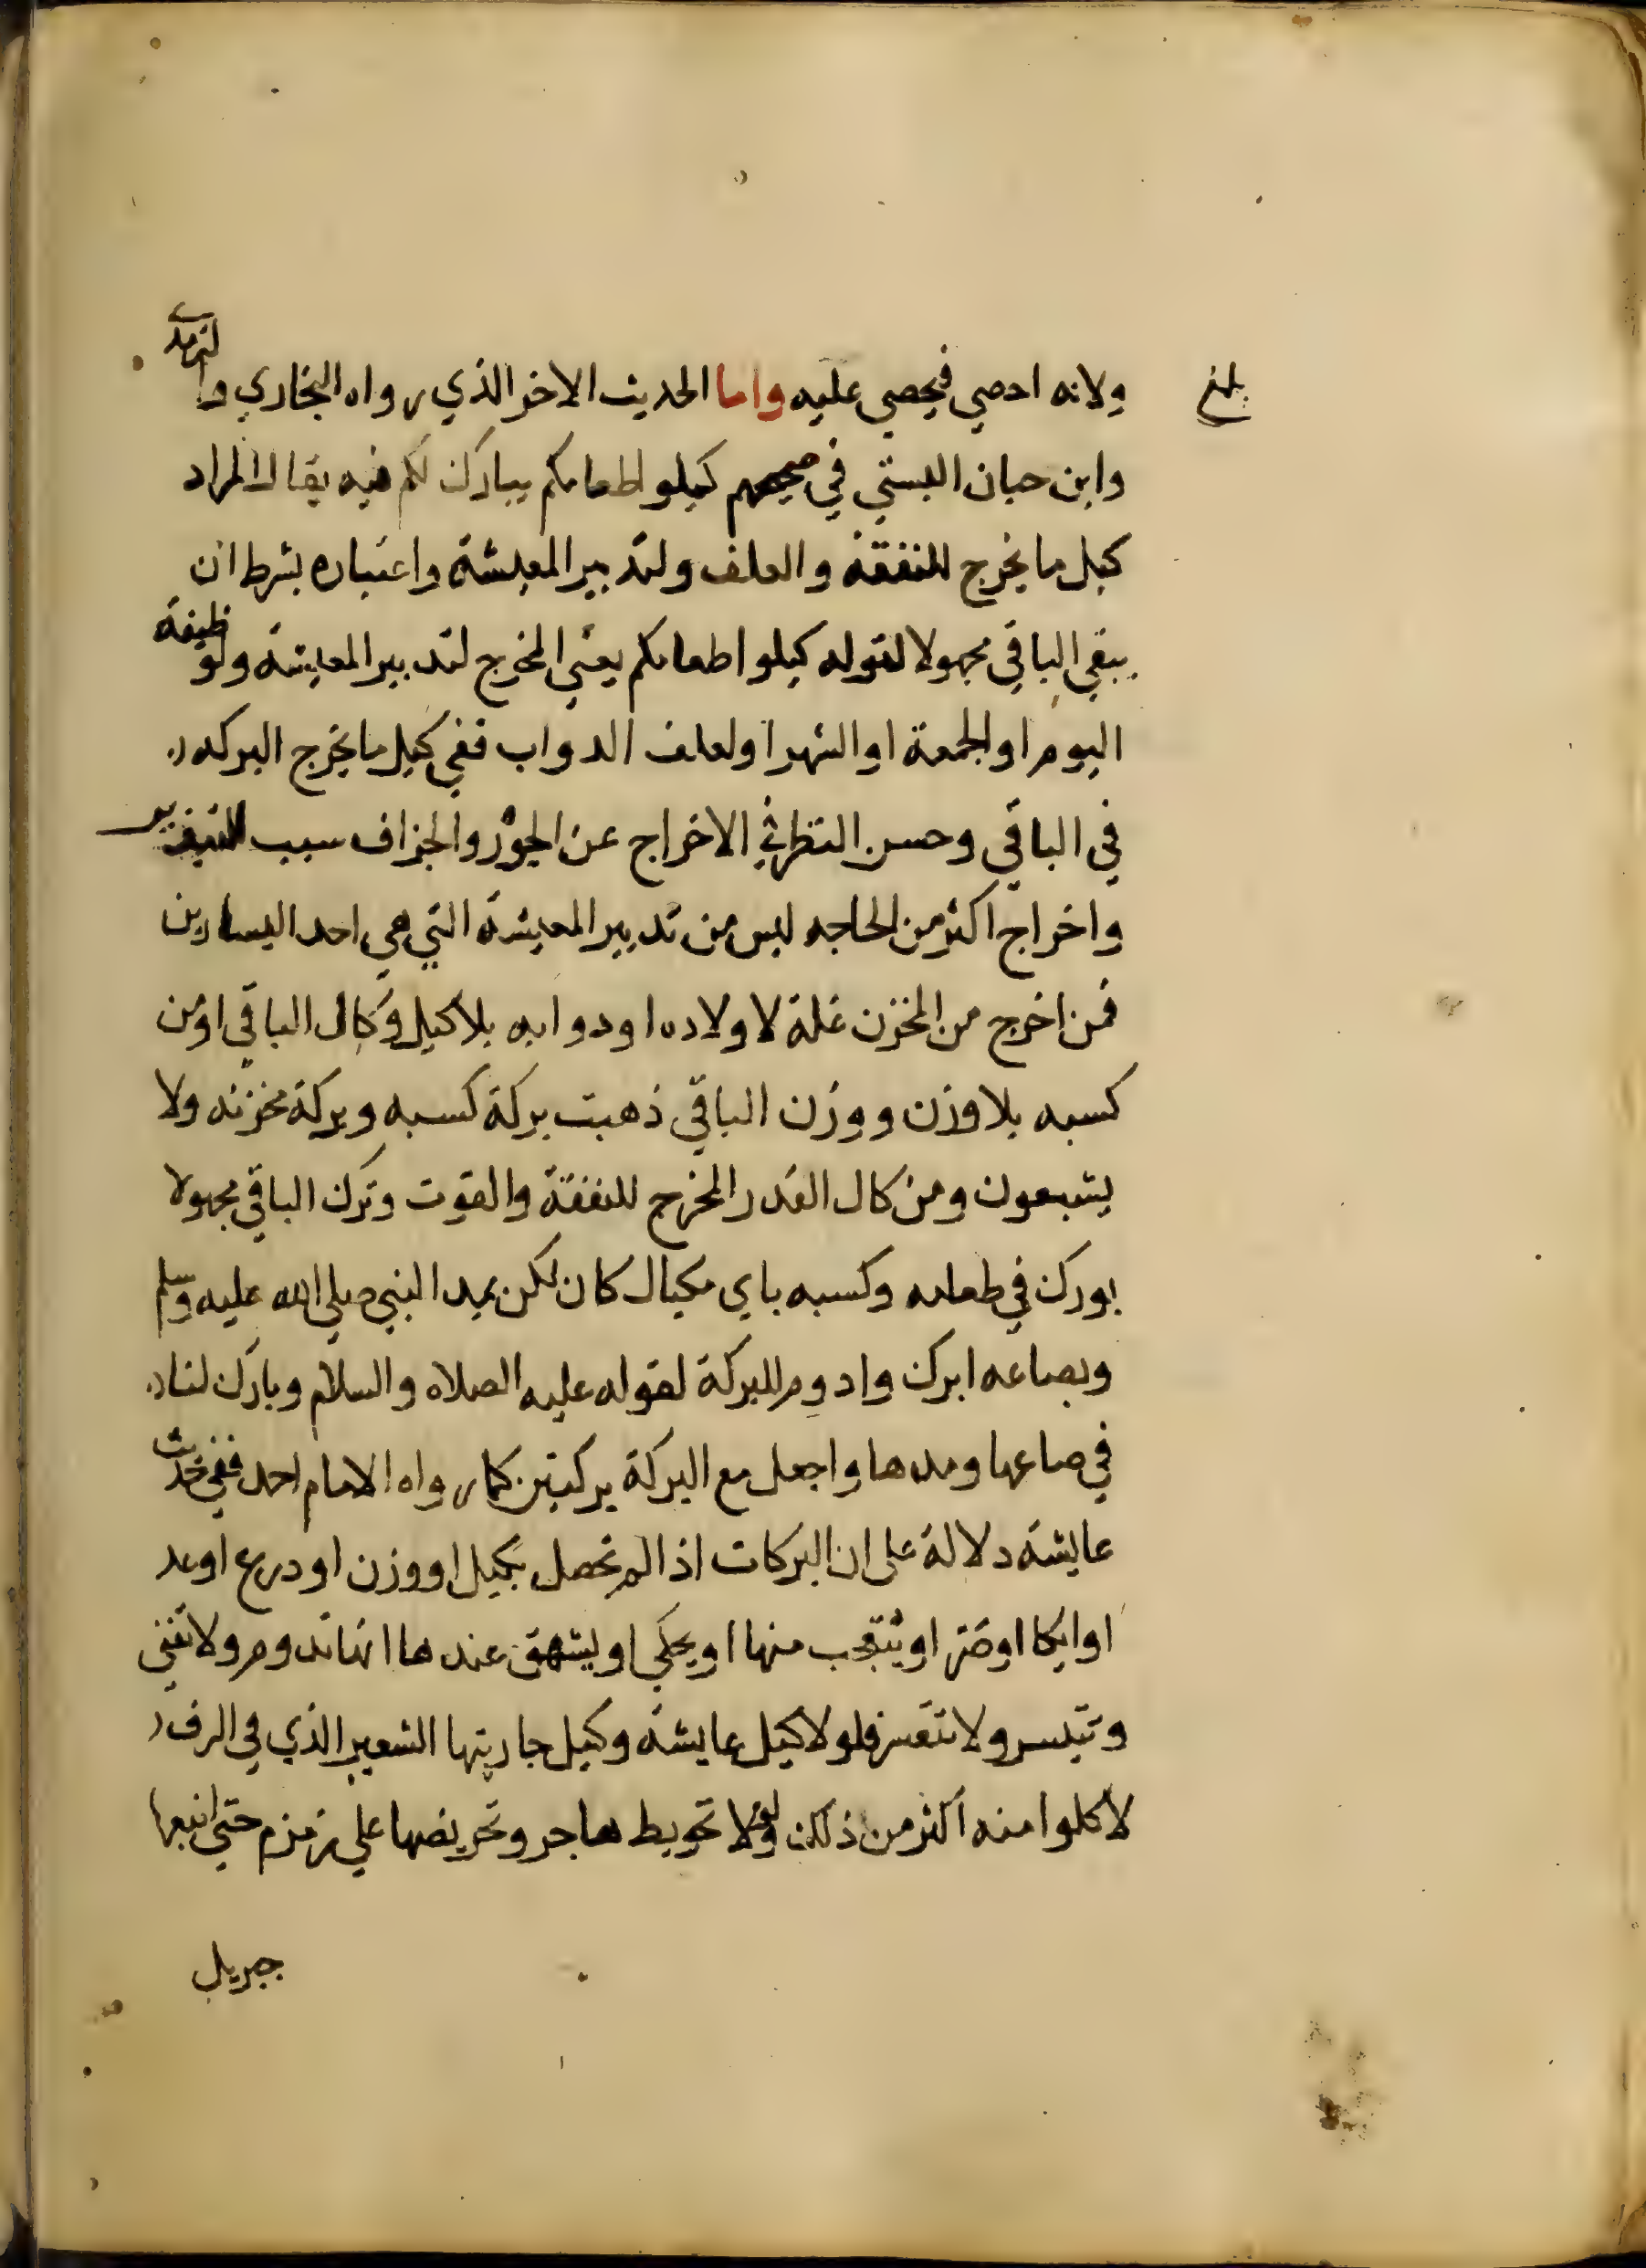 بلغ
ولانه احصي فيحصي عليه واما الحديث الاخر الذي رواه البخاري والترمذي
وابن حبان البستي في صحيحهم كيلوا طعامكم يبارك لكم فيه يقال المراد
كيل ما يخرج للنفقة والعلف ولتدبير المعيشة واعتباره بشرط ان
يبقي الباقي مجهولا لقوله كيلوا طعامكم يعني المخرج لتدبير المعيشة ولوظيفة
اليوم او الجمعة او الشهر او لعلف الدواب ففي كيل ما يخرج البركه
في الباقي وحسن النظر في الاخراج عن الجور والجزاف سبب
واخراج اكثر من الحاجه ليس من تدبير المعيشة التي هي احد اليسارين
فمن اخرج من المخزن غلة لاولاده او دوابه بلا كيل وكال الباقي او من
كسبه بلا وزن ووزن الباقي ذهبت بركة كسبه وبركة مخزنه ولا
يشبعون ومن كال القدر المخرج للنفقة والقوت وترك الباقي مجهولا
بورك في طعامه وكسبه باي مكيال كان لكن بمد النبي صلي الله عليه وسلم
وبصاعه ابرك وادوم للبركة لقوله عليه الصلاه والسلام وبارك لنا
في صاعها ومدها واجعل مع البركة بركتين كما رواه الامام احمد ففي حديث
عايشة دلالة على ان البركات اذا لم تحصل بكيل او وزن او درع او عد
او ايكا او يتعجب منها او يحكي او يشهق عندها انها تدوم ولا تفني
وتتيسر ولا تتعسر فلولا كيل عايشة وكيل جاريتها الشعير الذي في الرف
لاكلوا منه اكثر من ذلك ولولا تحويط هاجر وتحريضها علي زمزم حتي انبعها
جبريل